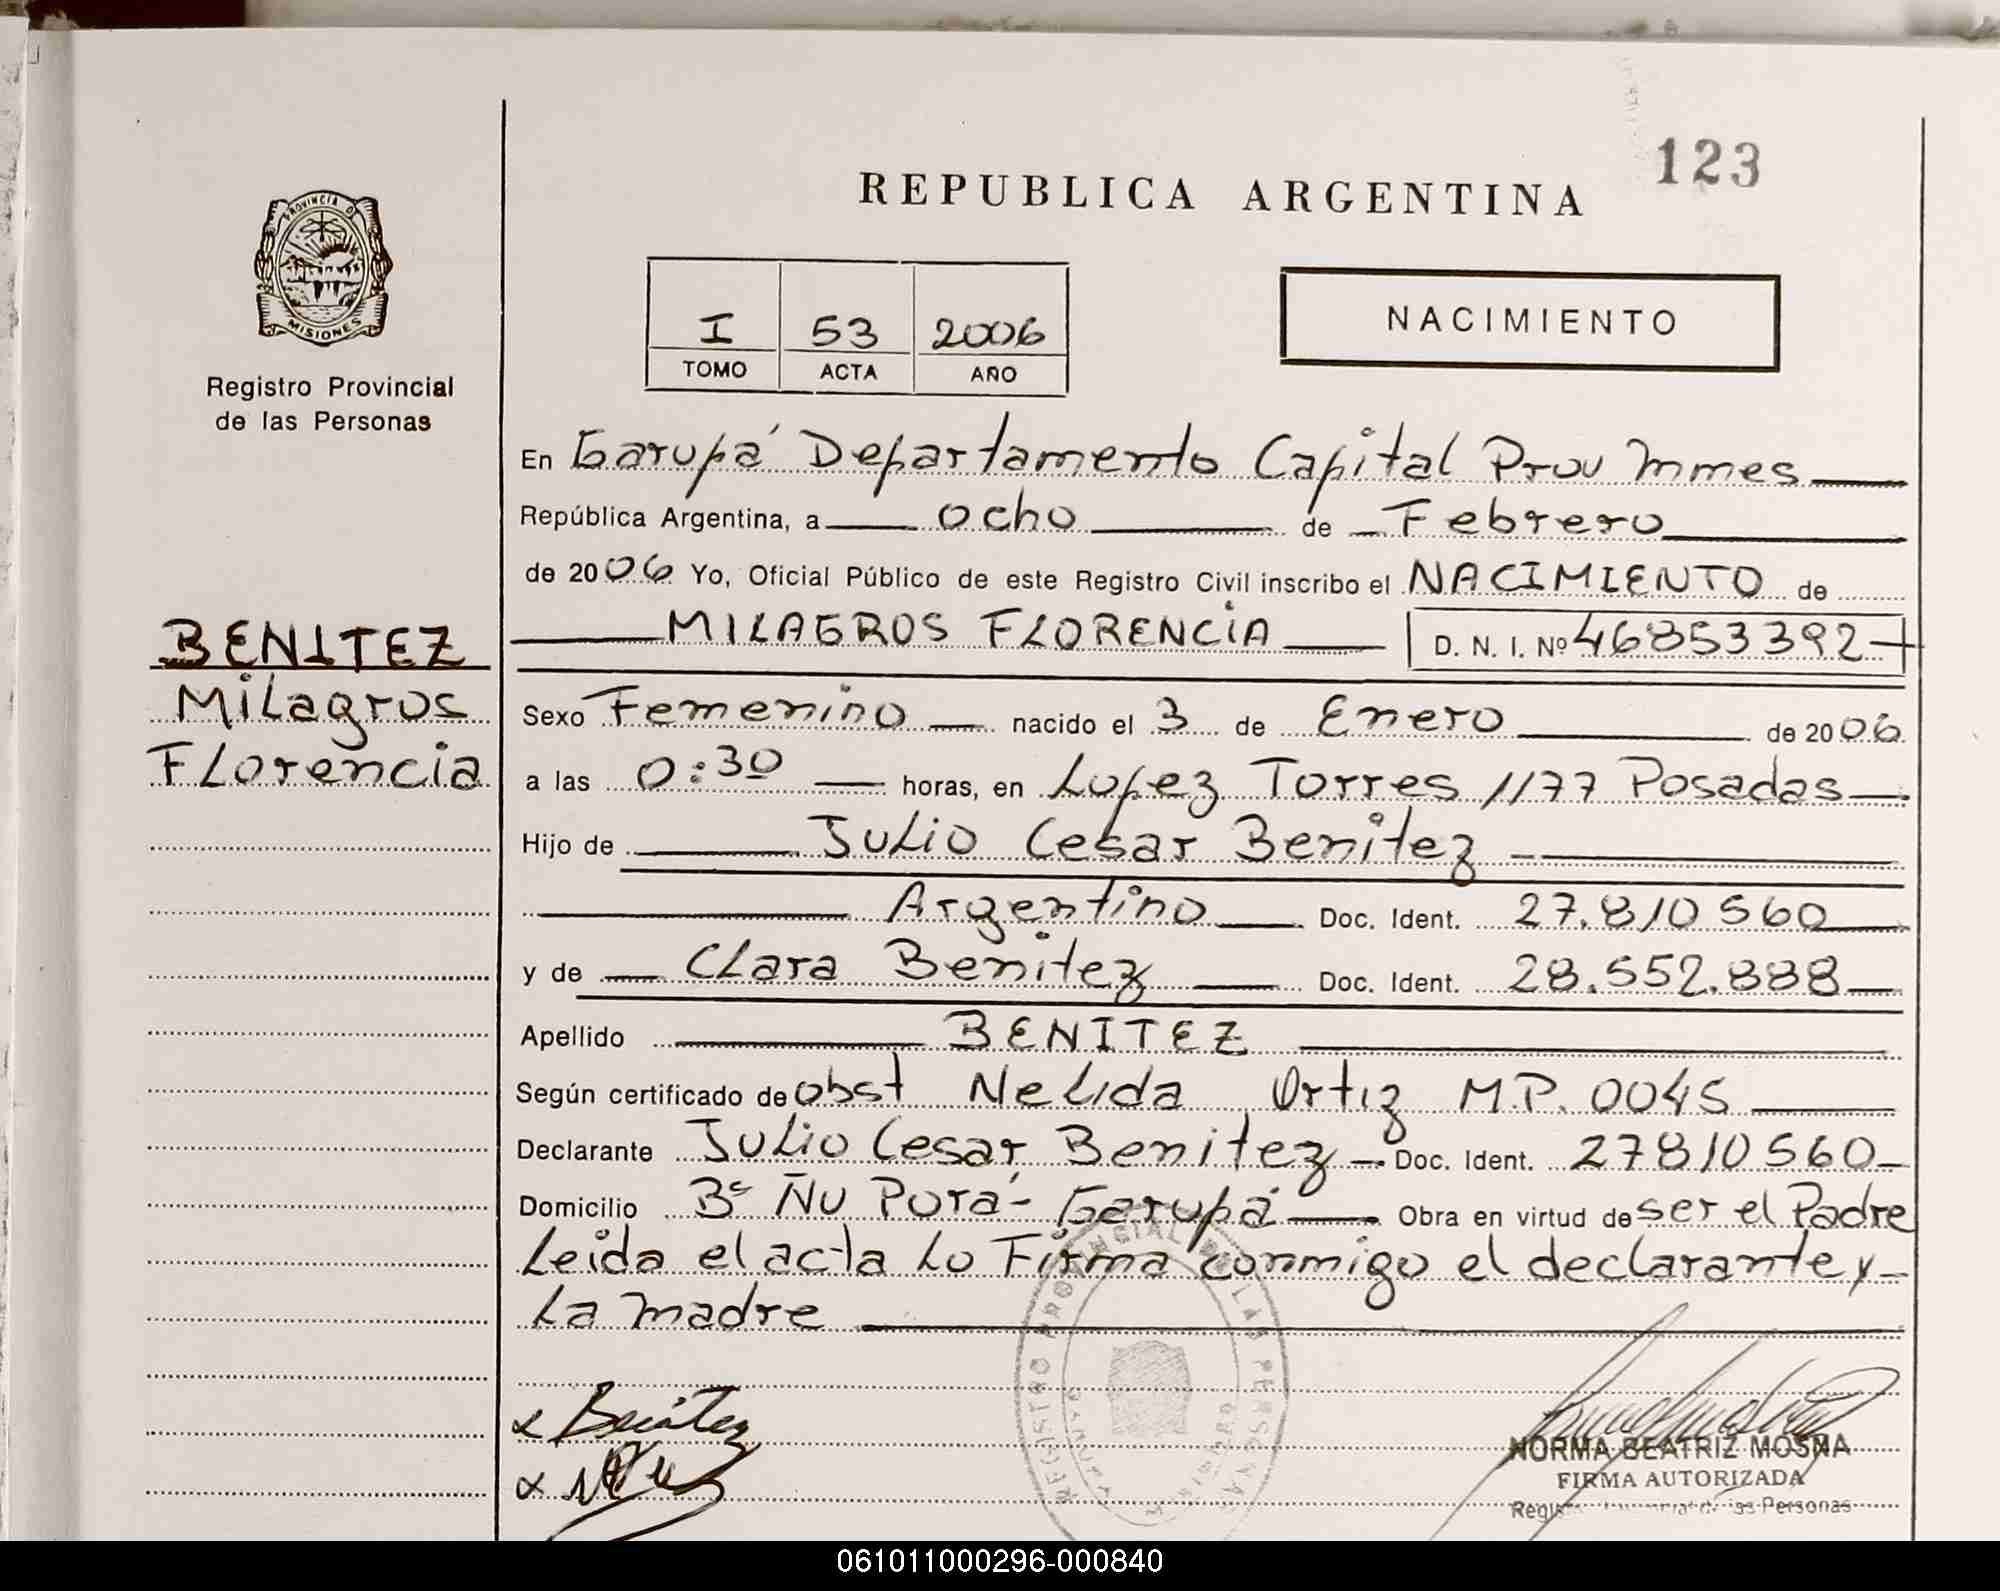 123
REPUBLICA ARGENTINA
PROVINCIA DE
MISIONES
Registro Provincial
de las Personas
I 53 2006
TOMO ACTA AÑO
NACIMIENTO
En Garupá Departamento Capital Prov Mmes
República Argentina, a ocho de Febrero
de 2006 Yo, Oficial Público de este Registro Civil inscribo el NACIMIENTO de
BENITEZ
Milagros
Florencia
MILAGROS FLORENCIA D. N. I. Nº 46853392
Sexo Femenino nacido el 3 de Enero de 2006
a las 0:30 horas, en Lopez Torres 1177 Posadas
Hijo de Julio Cesar Benitez
Argentino Doc. Ident. 27.810560
y de Clara Benitez Doc. Ident. 28.552.888
Apellido BENITEZ
Según certificado de obst Nelida Ortiz M.P. 0045
Declarante Julio Cesar Benitez Doc. Ident. 27810560
Domicilio Bº Ñu Porá - Garupá Obra en virtud de ser el Padre
Leida el acta Lo Firma conmigo el declarante y
La madre
REGISTRO PROVINCIAL DE LAS PERSONAS
GARUPA
MISIONES
x Benitez
x
NORMA BEATRIZ MOSNA
FIRMA AUTORIZADA
de las Personas
061011000296-000840